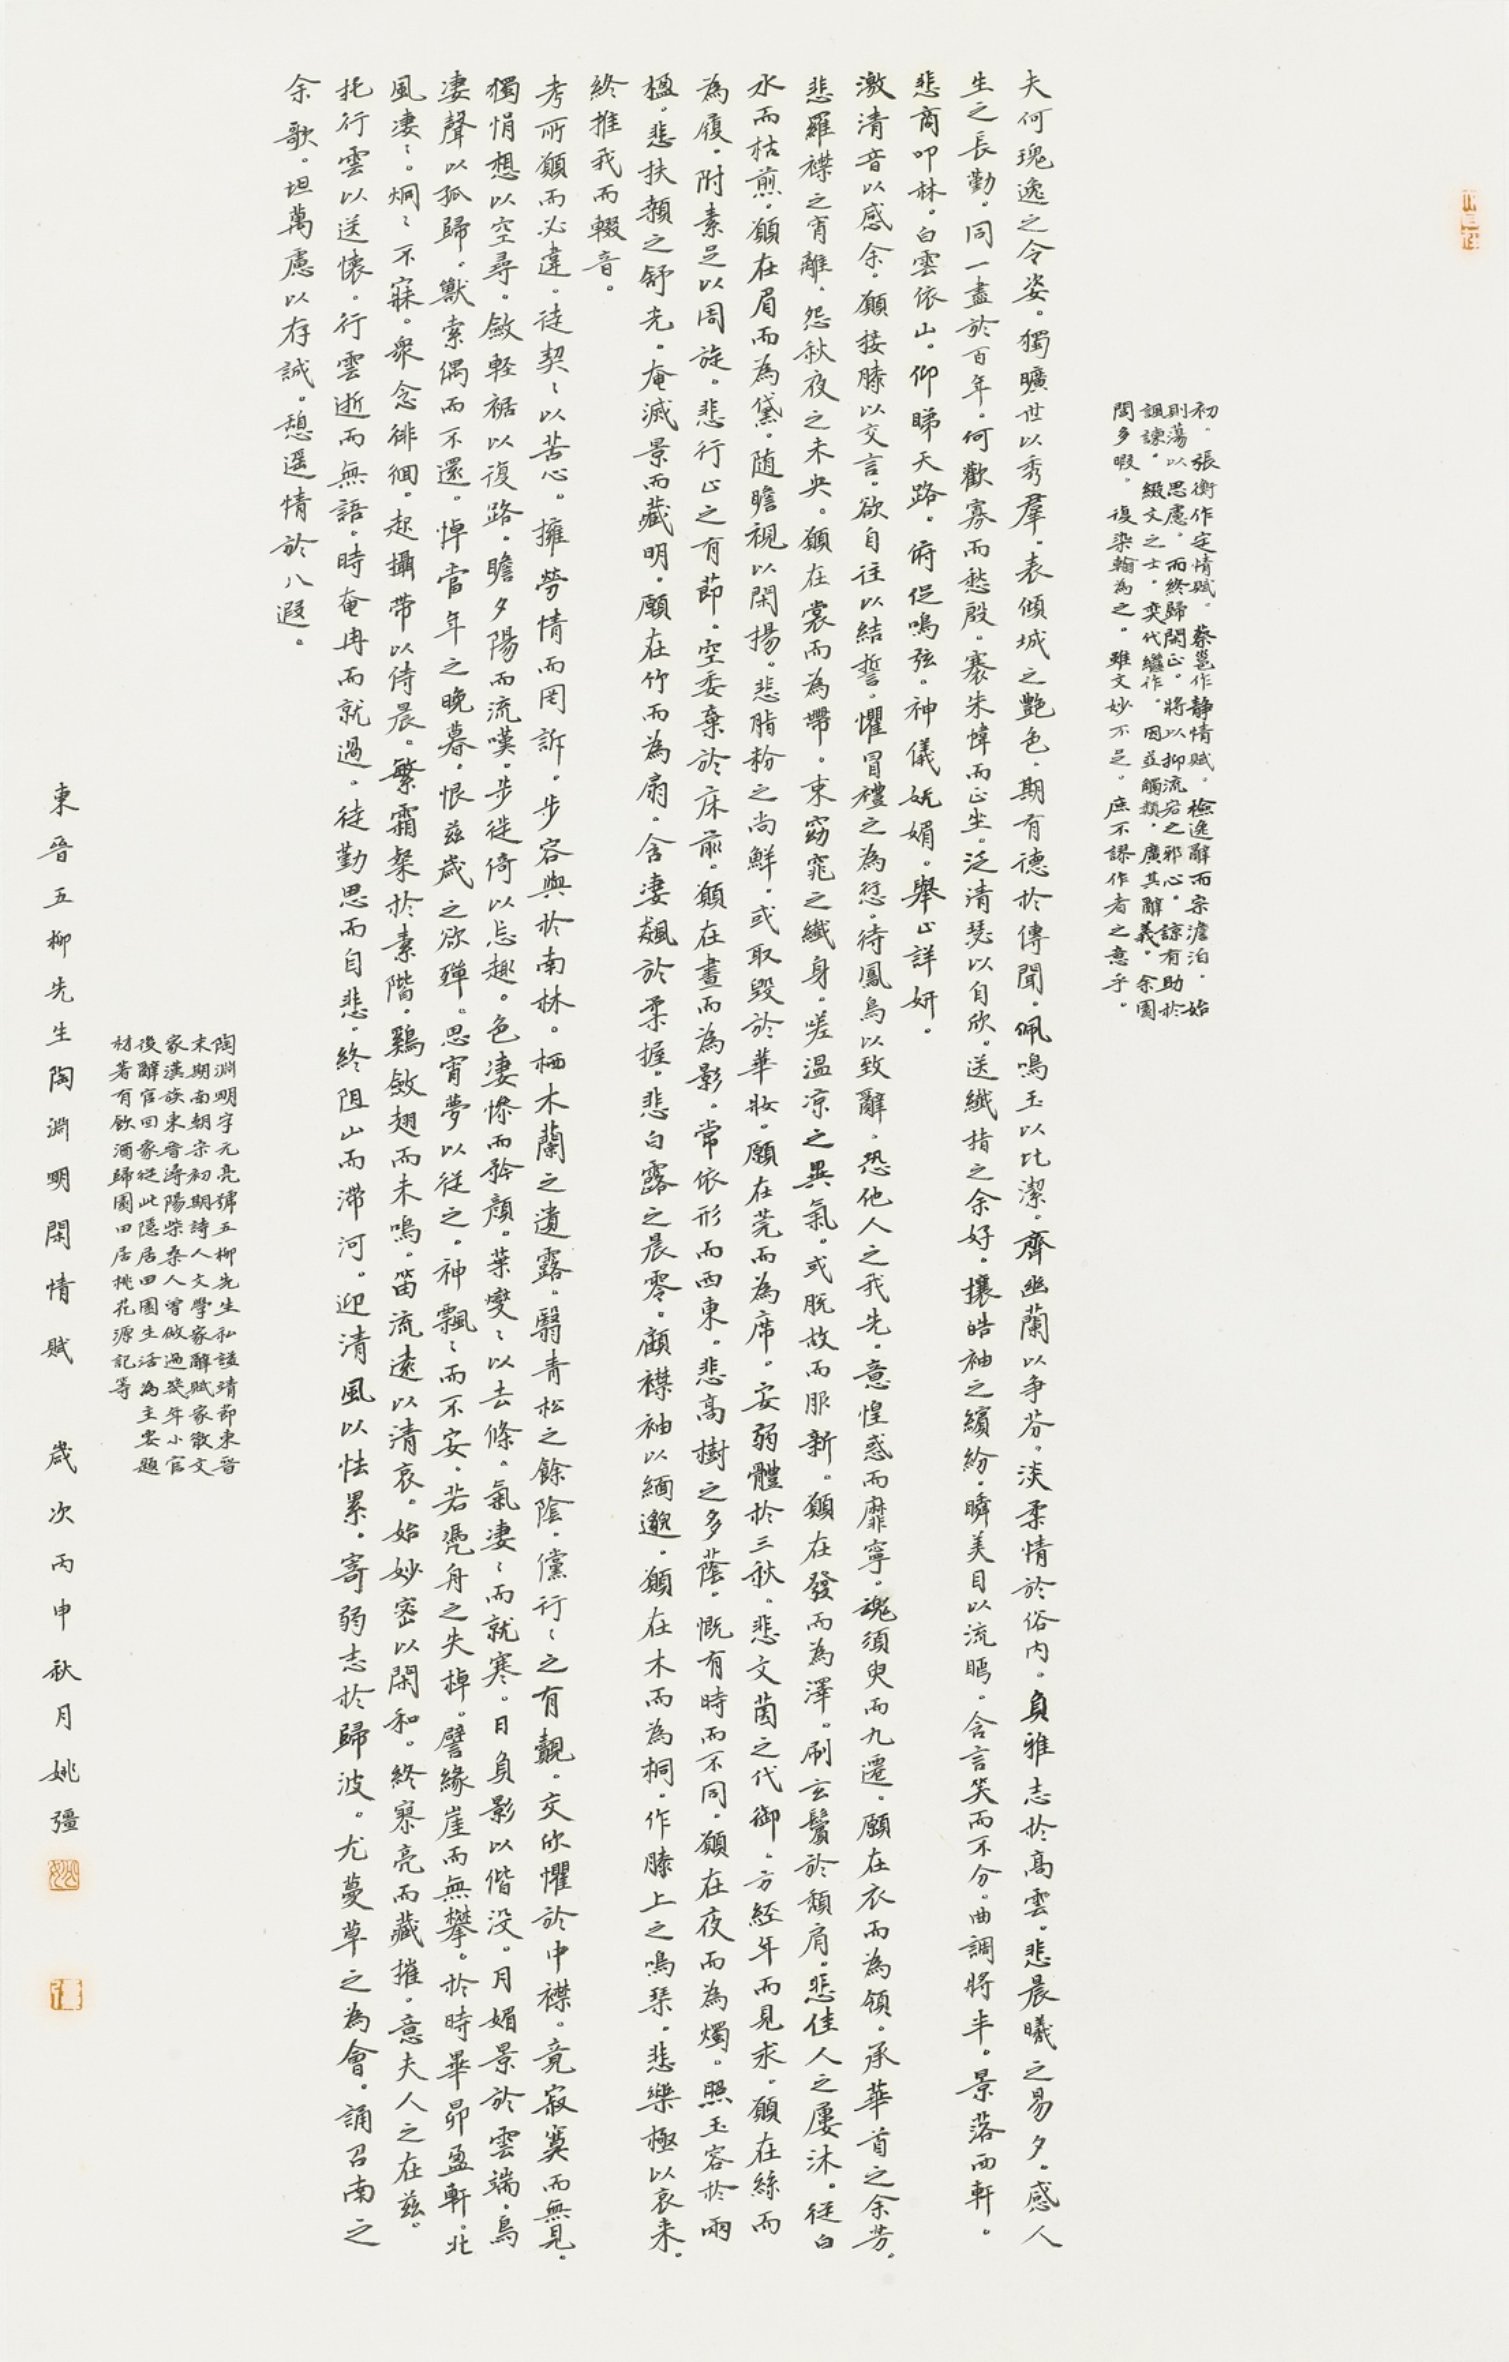 初。張衡作定情賦。蔡邕作静情賦。檢逸辭而宗澹泊。始
則蕩以思慮。而終歸閑正。將以抑流宕之邪心。諒有助於
諷諫。綴文之士。奕代繼作。因並觸類。廣其辭義。余園
閭多暇。復染翰為之。雖文妙不足。庶不謬作者之意乎。
夫何瑰逸之令姿。獨曠世以秀羣。表傾城之艷色。期有德於傳聞。佩鳴玉以比潔。齊幽蘭以争芬。淡柔情於俗内。負雅志於高雲。悲晨曦之易夕。感人
生之長勤。同一盡於百年。何歡寡而愁殷。褰朱幃而正坐。泛清瑟以自欣。送纖指之余好。攘皓袖之繽紛。瞬美目以流眄。含言笑而不分。曲調將半。景落西軒。
悲商叩林。白雲依山。仰睇天路。俯促鳴弦。神儀嫵媚。舉止詳妍。
激清音以感余。願接膝以交言。欲自往以結誓。懼冒禮之為愆。待鳳鳥以致辭。恐他人之我先。意惶惑而靡寧。魂須臾而九遷。願在衣而為領。承華首之余芳。
悲羅襟之宵離。怨秋夜之未央。願在裳而為帶。束窈窕之纖身。嗟温凉之異氣。或脱故而服新。願在發而為澤。刷玄鬢於頹肩。悲佳人之屢沐。從白
水而枯煎。願在眉而為黛。随瞻視以閑揚。悲脂粉之尚鮮。或取毁於華妝。願在莞而為席。安弱體於三秋。悲文茵之代御。方經年而見求。願在絲而
為履。附素足以周旋。悲行止之有節。空委棄於床前。願在晝而為影。常依形而西東。悲高樹之多蔭。慨有時而不同。願在夜而為燭。照玉容於兩
楹。悲扶桑之舒光。奄滅景而藏明。願在竹而為扇。含凄飆於柔握。悲白露之晨零。顧襟袖以緬邈。願在木而為桐。作膝上之鳴琴。悲樂極以哀来。
終推我而輟音。
考所願而必違。徒契〻以苦心。擁勞情而罔訴。步容與於南林。栖木蘭之遺露。翳青松之餘陰。儻行〻之有覿。交欣懼於中襟。竟寂寞而無見。
獨悁想以空尋。斂輕裾以復路。瞻夕陽而流嘆。步徙倚以忘趣。色凄慘而矜顔。葉燮〻以去條。氣凄〻而就寒。日負影以偕没。月媚景於雲端。鳥
凄聲以孤歸。獸索偶而不還。悼當年之晚暮。恨兹歲之欲殫。思宵夢以從之。神飄〻而不安。若凭舟之失棹。譬緣崖而無攀。於時畢昴盈軒。北
風凄〻。炯〻不寐。衆念徘徊。起攝帶以侍晨。繁霜粲於素階。鷄斂翅而未鳴。笛流遠以清哀。始妙密以閑和。終寥亮而藏摧。意夫人之在兹。
托行雲以送懷。行雲逝而無語。時奄冉而就過。徒勤思而自悲。終阻山而滯河。迎清風以怯累。寄弱志於歸波。尤蔓草之為會。誦召南之
余歌。坦萬慮以存誠。憩遥情於八遐。
陶淵明字元亮號五柳先生私謚靖節東晋
末期南朝宋初期詩人文學家辭賦家散文
家漢族東晋潯陽柴桑人曾做過幾年小官
後辭官回家從此隱居田園生活為主要題
材著有飲酒歸園田居桃花源記等
東晋五柳先生陶淵明閑情賦　歲次丙申秋月姚彊